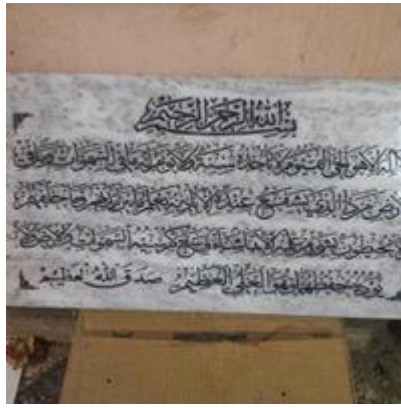 بسم الله الرحمن الرحيم
الله لا إله إلا هو الحي القيوم لا تأخذه سنة ولا نوم له ما في السموات وما في
الأرض من ذا الذي يشفع عنده إلا بإذنه يعلم ما بين أيديهم وما خلفهم
ولا يحيطون بشيء من علمه إلا بما شاء وسع كرسيه السموات والأرض ولا
يؤده حفظهما وهو العلي العظيم صدق الله العظيم